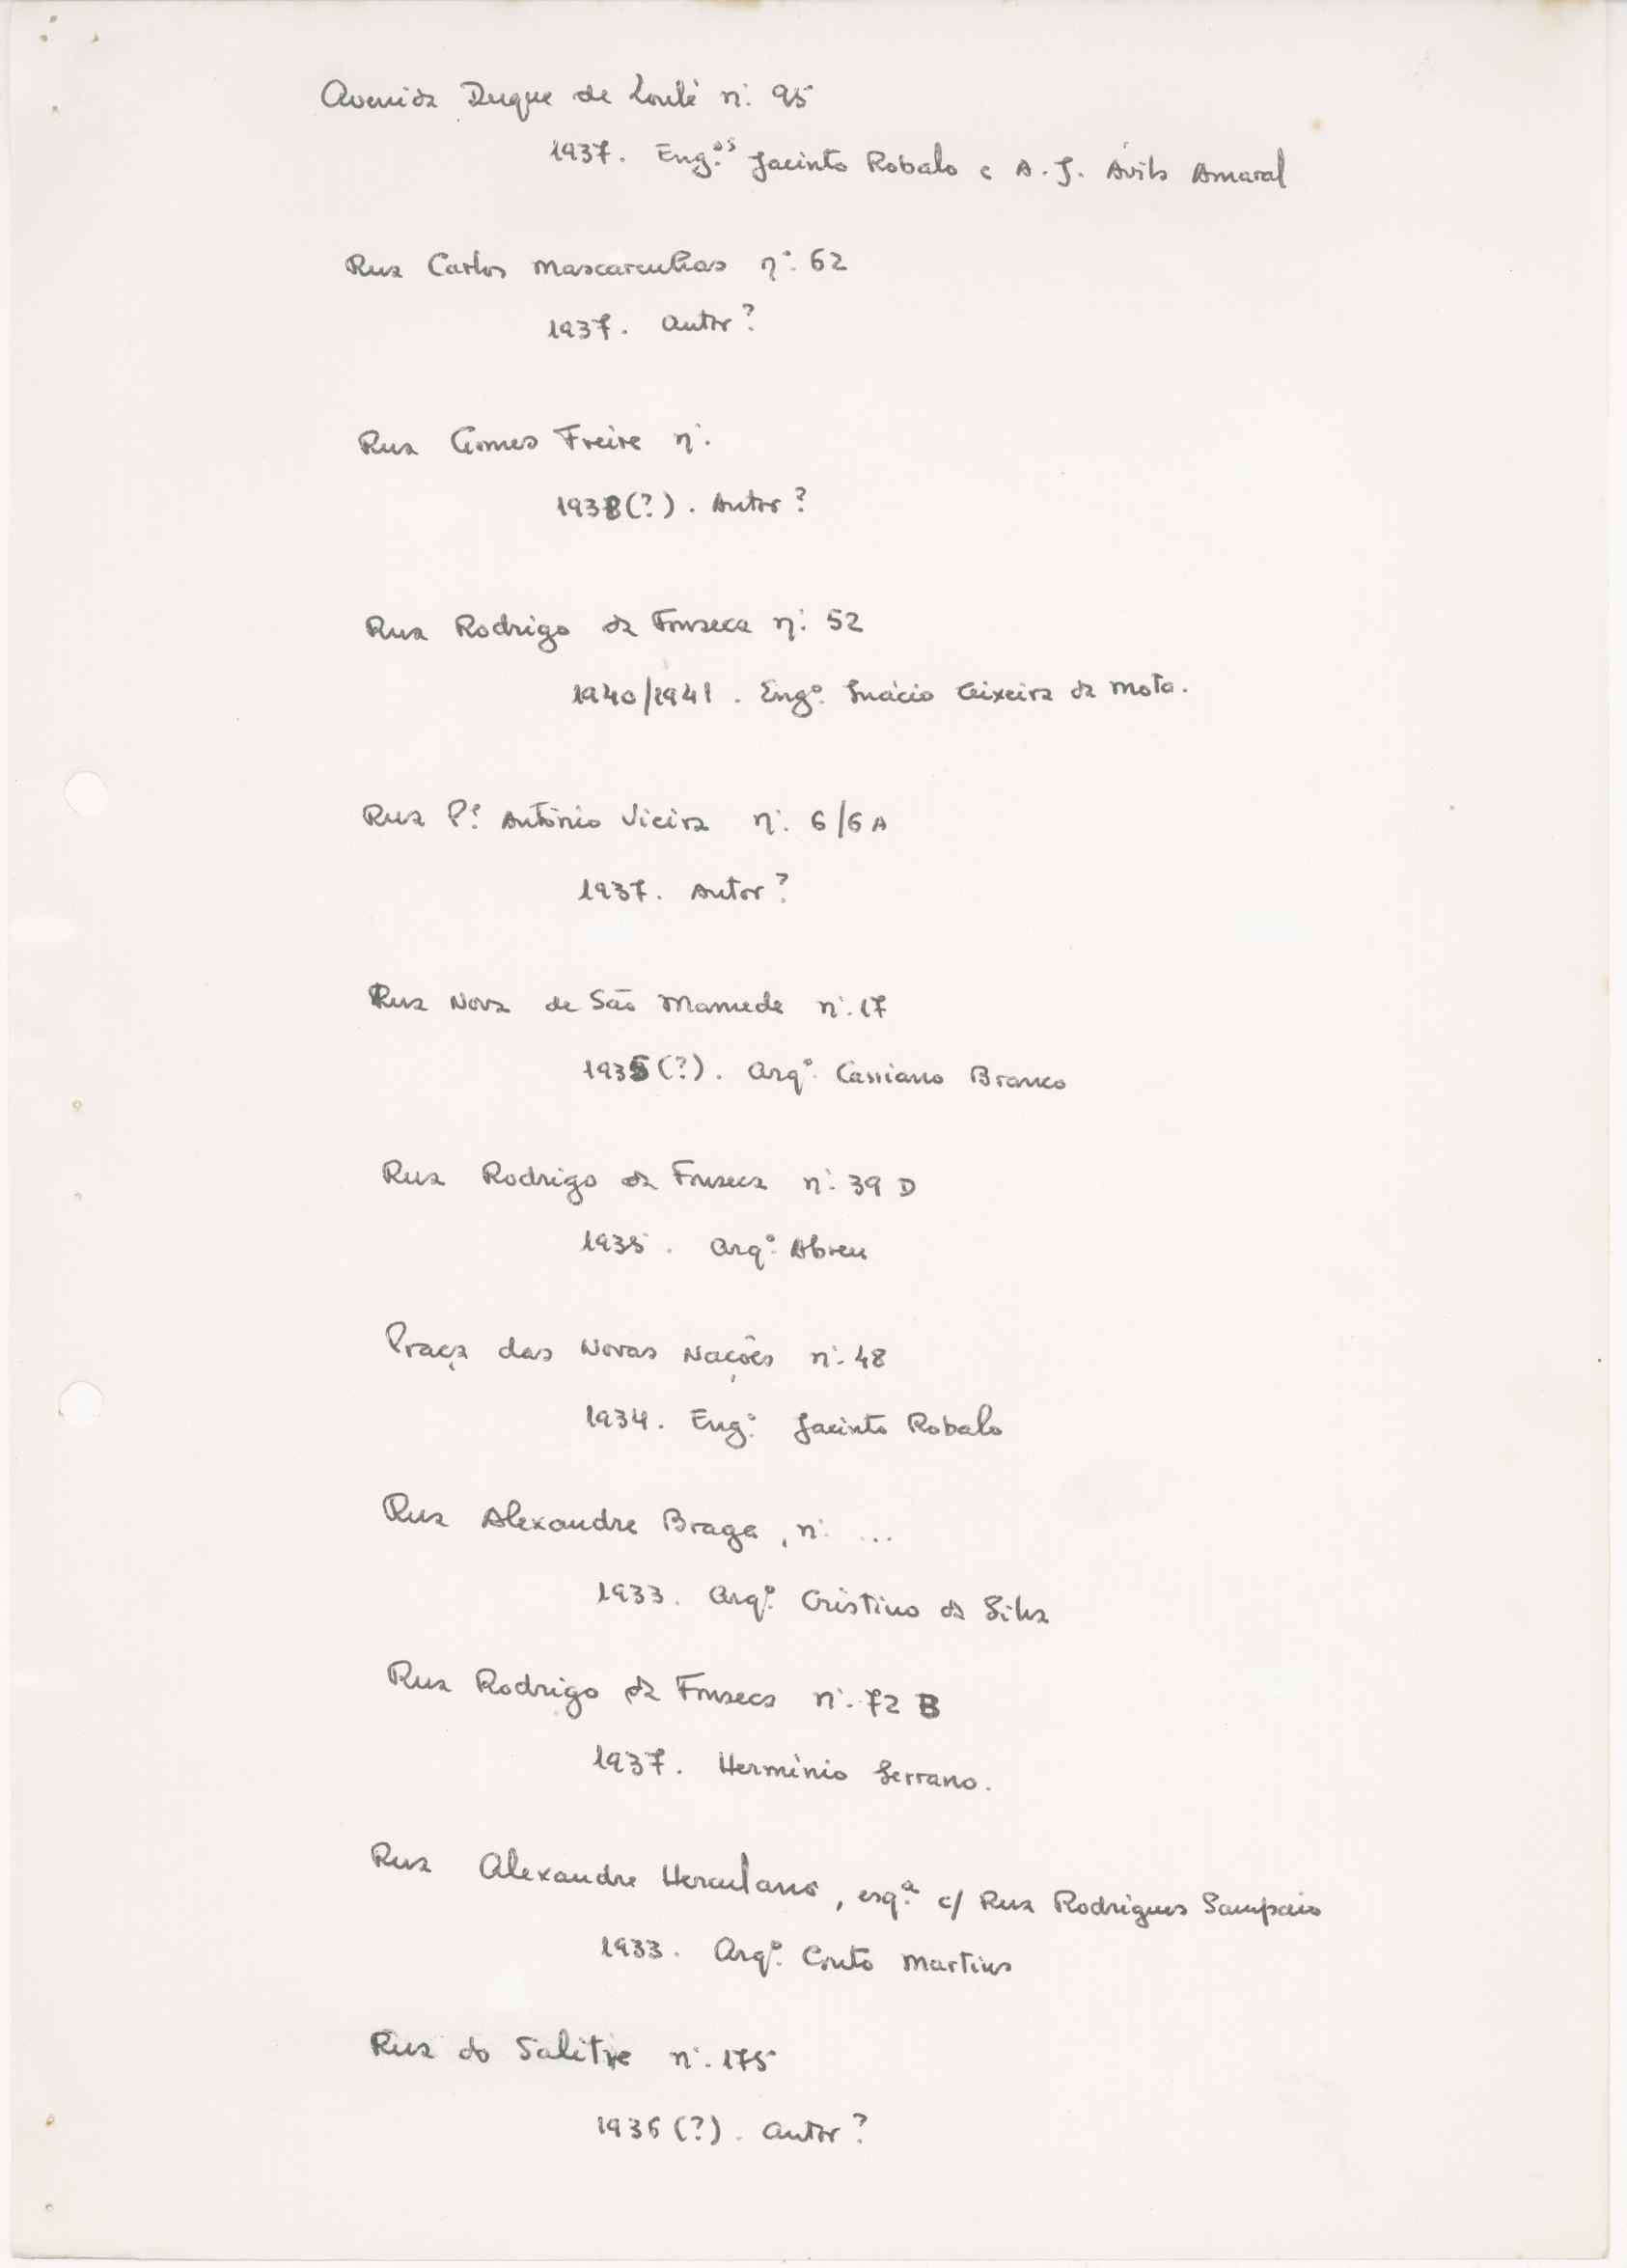 Avenida Duque de Loulé nº. 95
1937. Eng.ºs Jacinto Robalo e A. J. Ávila Amaral
Rua Carlos Mascarenhas nº. 62
1937. Autor?
Rua Gomes Freire nº.
1938(?). Autor?
Rua Rodrigo da Fonseca nº. 52
1940/1941. Engº. Inácio Teixeira da Mota.
Rua Pe. António Vieira nº. 6/6A
1937. Autor?
Rua Nova de São Mamede nº. 17
1935(?). Arqº. Cassiano Branco
Rua Rodrigo da Fonseca nº. 39 D
1935. Arqº. Abreu
Praça das Novas Nações nº. 48
1934. Engº. Jacinto Robalo
Rua Alexandre Braga, nº ...
1933. Arqº. Cristino da Silva
Rua Rodrigo da Fonseca nº. 72 B
1937. Hermínio Serrano.
Rua Alexandre Herculano, esq.ª c/ Rua Rodrigues Sampaio
1933. Arqº. Couto Martins
Rua do Salitre nº. 175
1936(?). Autor?